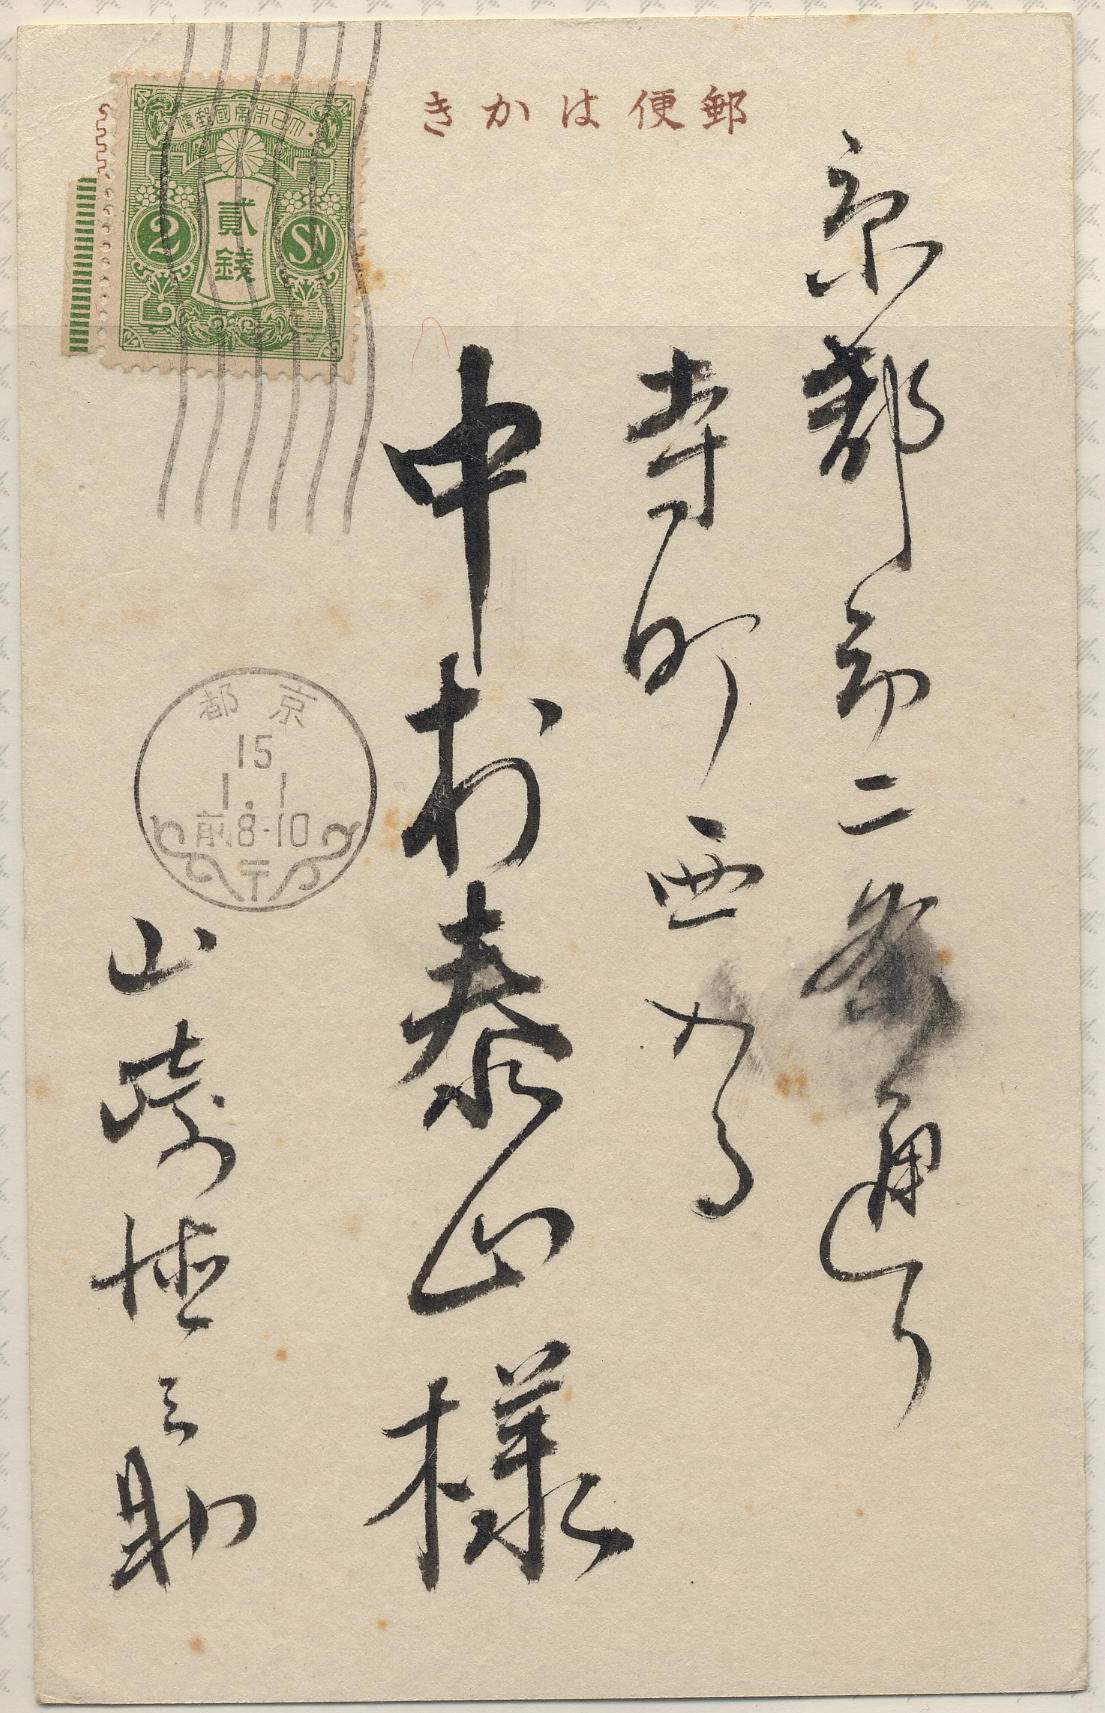 郵便はかき
大日本帝國郵便
貳錢
2
SN
京都市二条通り
寺町西入る
中村泰山様
京都
15
1.1
前8-10
〒
山崎
之助